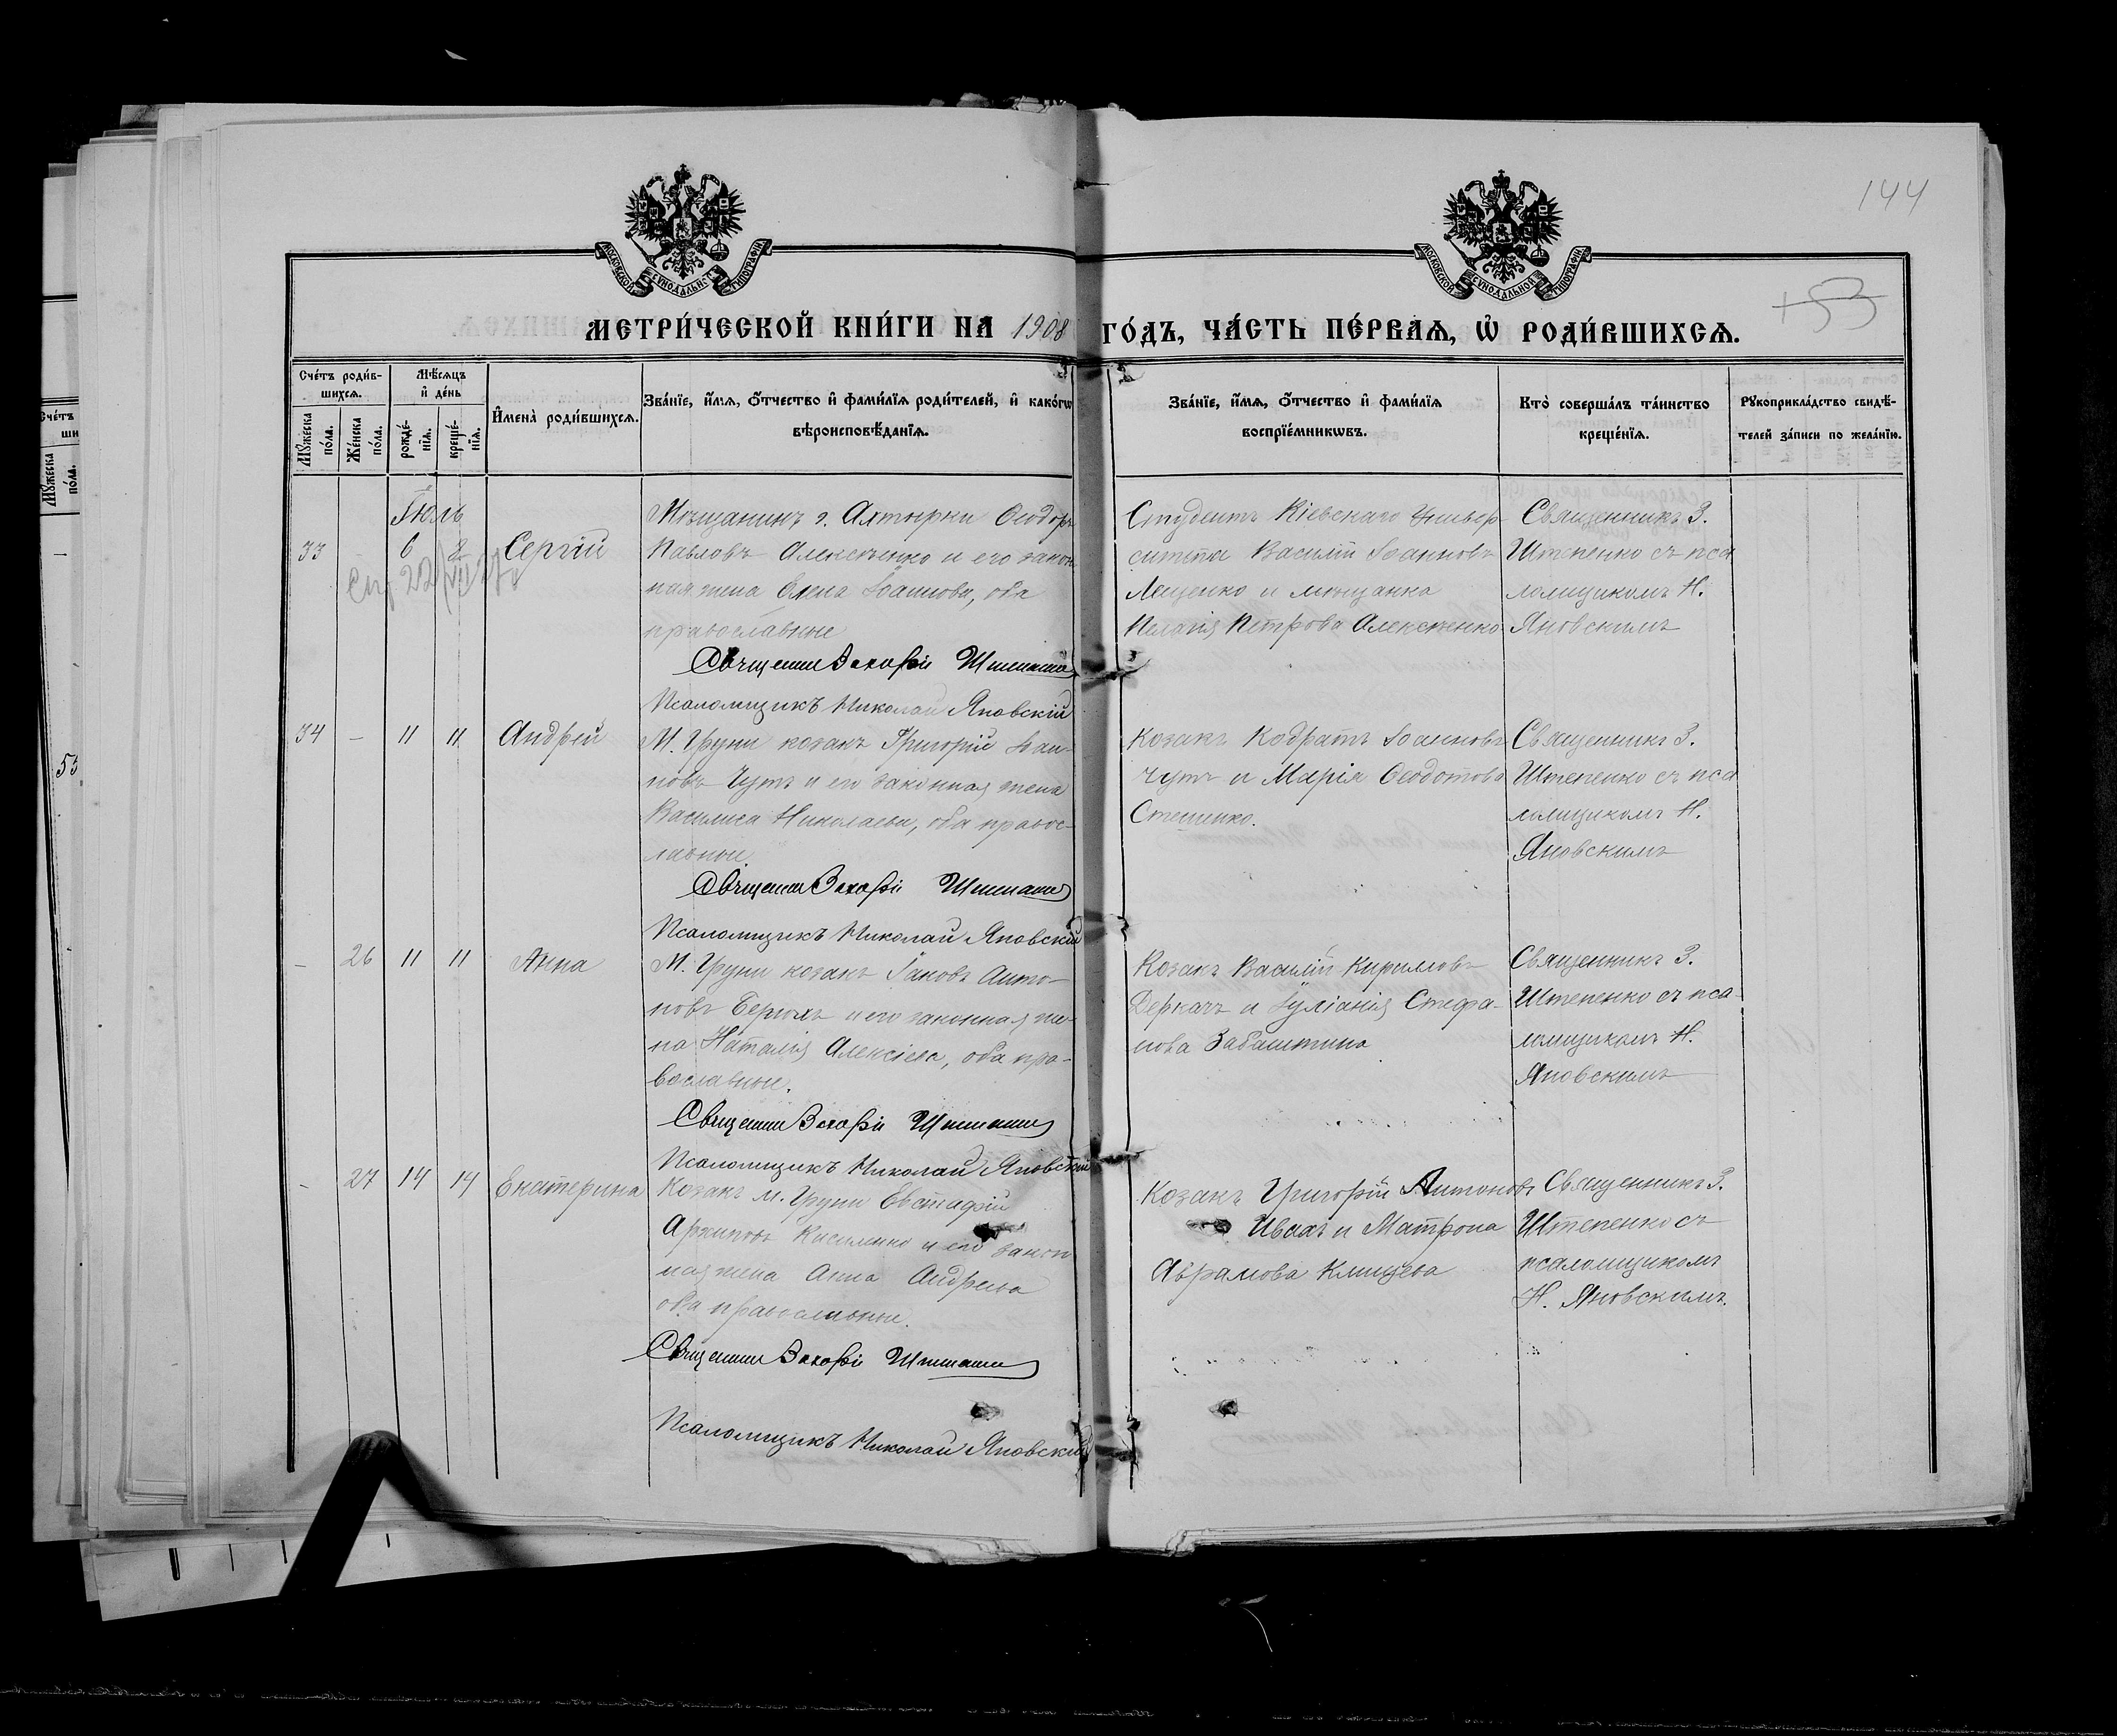 144
153
МОСКОВСКОЙ СѴНОДАЛЬНОЙ ТИПОГРАФІИ
МОСКОВСКОЙ СѴНОДАЛЬНОЙ ТИПОГРАФІИ
МЕТРИ́ЧЕСКОЙ КНИ́ГИ НА 1908 ГО́ДЪ, ЧА́СТЬ ПЕ́РВАЯ, Ѡ҆ РОДИ́ВШИХСЯ.
Сче́тъ роди́в-
шихся.
Мꙋ́жеска
по́ла.
Же́нска
по́ла.
Мѣ́сяцъ
и҆ де́нь
рожде́-
нїя.
креще́-
нїя.
И҆мена̀ роди́вшихся.
Зва́нїе, и҆́мя, ѻ҆́тчество и҆ фами́лїя роди́телей, и҆ како́гѡ
вѣроисповѣ́данїя.
Зва́нїе, и҆́мя, ѻ҆́тчество и҆ фами́лїя
воспрїе́мникѡвъ.
Кто̀ соверша́лъ та́инство
креще́нїя.
Рꙋкоприкла́дство свидѣ́-
телей за́писи по жела́нїю.
Іюль
33 - 6 8 Сергій
Мѣщанинъ г. Ахтырки Ѳеодоръ
Павловъ Алексѣенко и его закон
ная жена Елена Іоаннова, оба
православные
Священник Захарій Штепенко
Псаломщикъ Николай Яновскій
Студентъ Кіевскаго Универ-
ситета Василій Іоанновъ
Лещенко и мѣщанка
Пелагія Петрова Алексѣенко
Священникъ З.
Штепенко съ пса
ломщикомъ Н.
Яновскимъ
34 - 11 11 Андрей
М. Груни козакъ Григорій Іоан-
новъ Чутъ и его законная жена
Василиса Николаева, оба правос-
лавные.
Священник Захарій Штепенко
Псаломщикъ Николай Яновскій
Козакъ Кодратъ Іоанновъ
Чутъ и Марія Ѳеодотова
Стешенко.
Священникъ З.
Штепенко съ пса
ломщикомъ Н.
Яновскимъ
- 26 11 11 Анна
М. Груни козакъ Іаковъ Анто-
новъ и его законная же-
на Наталія Алексіева, оба пра-
вославные.
Священник Захарій Штепенко
Псаломщикъ Николай Яновскій
Козакъ Василій Кирилловъ
Деркачъ и Іуліанія Стефа-
нова Забаштина
Священникъ З.
Штепенко съ пса-
ломщикомъ Н.
Яновскимъ
- 27 14 14 Екатерина
Козакъ м. Груни Евстафій
Архиповъ Кисиленко и его закон
ная жена Анна Андреева
оба православные.
Священник Захарій Штепенко
Псаломщикъ Николай Яновскій
Козакъ Григорій Антоновъ
Ивахъ и Матрона
Аврамова Клищева
Священникъ З.
Штепенко съ
псаломщикомъ
Н. Яновскимъ.
Сче́тъ
ши
Мꙋ́жеска
по́ла.
53